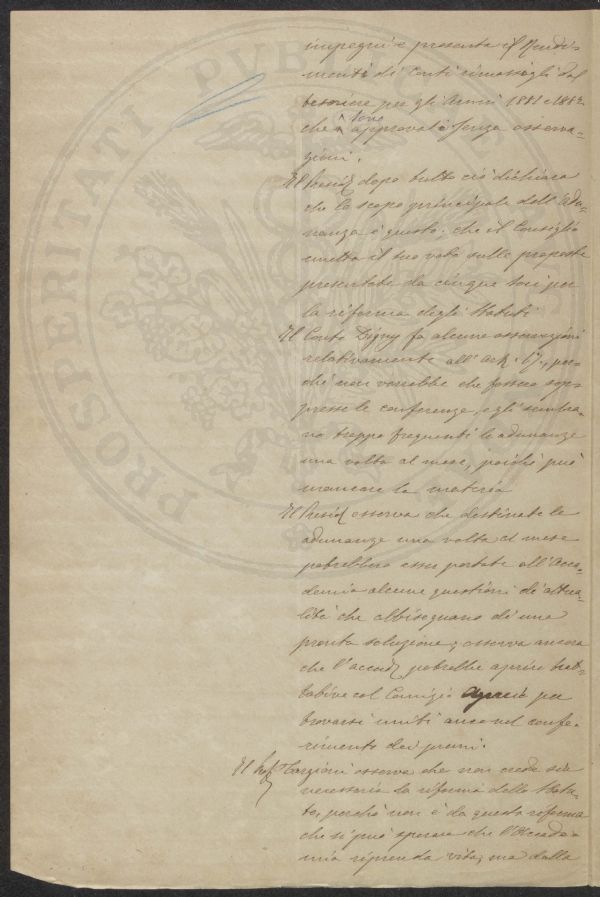 PROSPERITATI PUBLICAE
impegni e presenta il Rendi-
menti di Conti rimessigli dal
tesoriere per gli Anni 1881 e 1882
che sono approvati senza osserva-
zioni.
Il Presid dopo tutto ciò dichiara
che lo scopo principale dell'adu-
nanza è questo; che il Consiglio
emetta il suo voto sulle proposte
presentate da cinque soci per
la riforma degli Statuti
Il Conte Digny fa alcune osservazioni
relativamente all'art. 17, per-
chè non vorrebbe che fossero sop-
presse le conferenze, e gli sembra-
no troppo frequenti le adunanze
una volta al mese, poichè può
mancare la materia
Il Presid osserva che destinate le
adunanze una volta al mese
potrebbero esser portate all'Acca-
demia alcune questioni di attua-
lità che abbisognano di una
pronta soluzione; osserva ancora
che l'accad potrebbe aprire trat-
tative col Comizio Agrario per
trovarsi uniti anco nel confe-
rimento dei premi.
Il Prof Targioni osserva che non crede sia
necessaria la riforma dello Statu-
to, perchè non è da questa riforma
che si può sperare che l'Accade-
mia riprenda vita; ma dalla